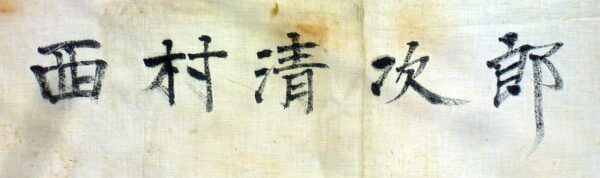 西村清次郎